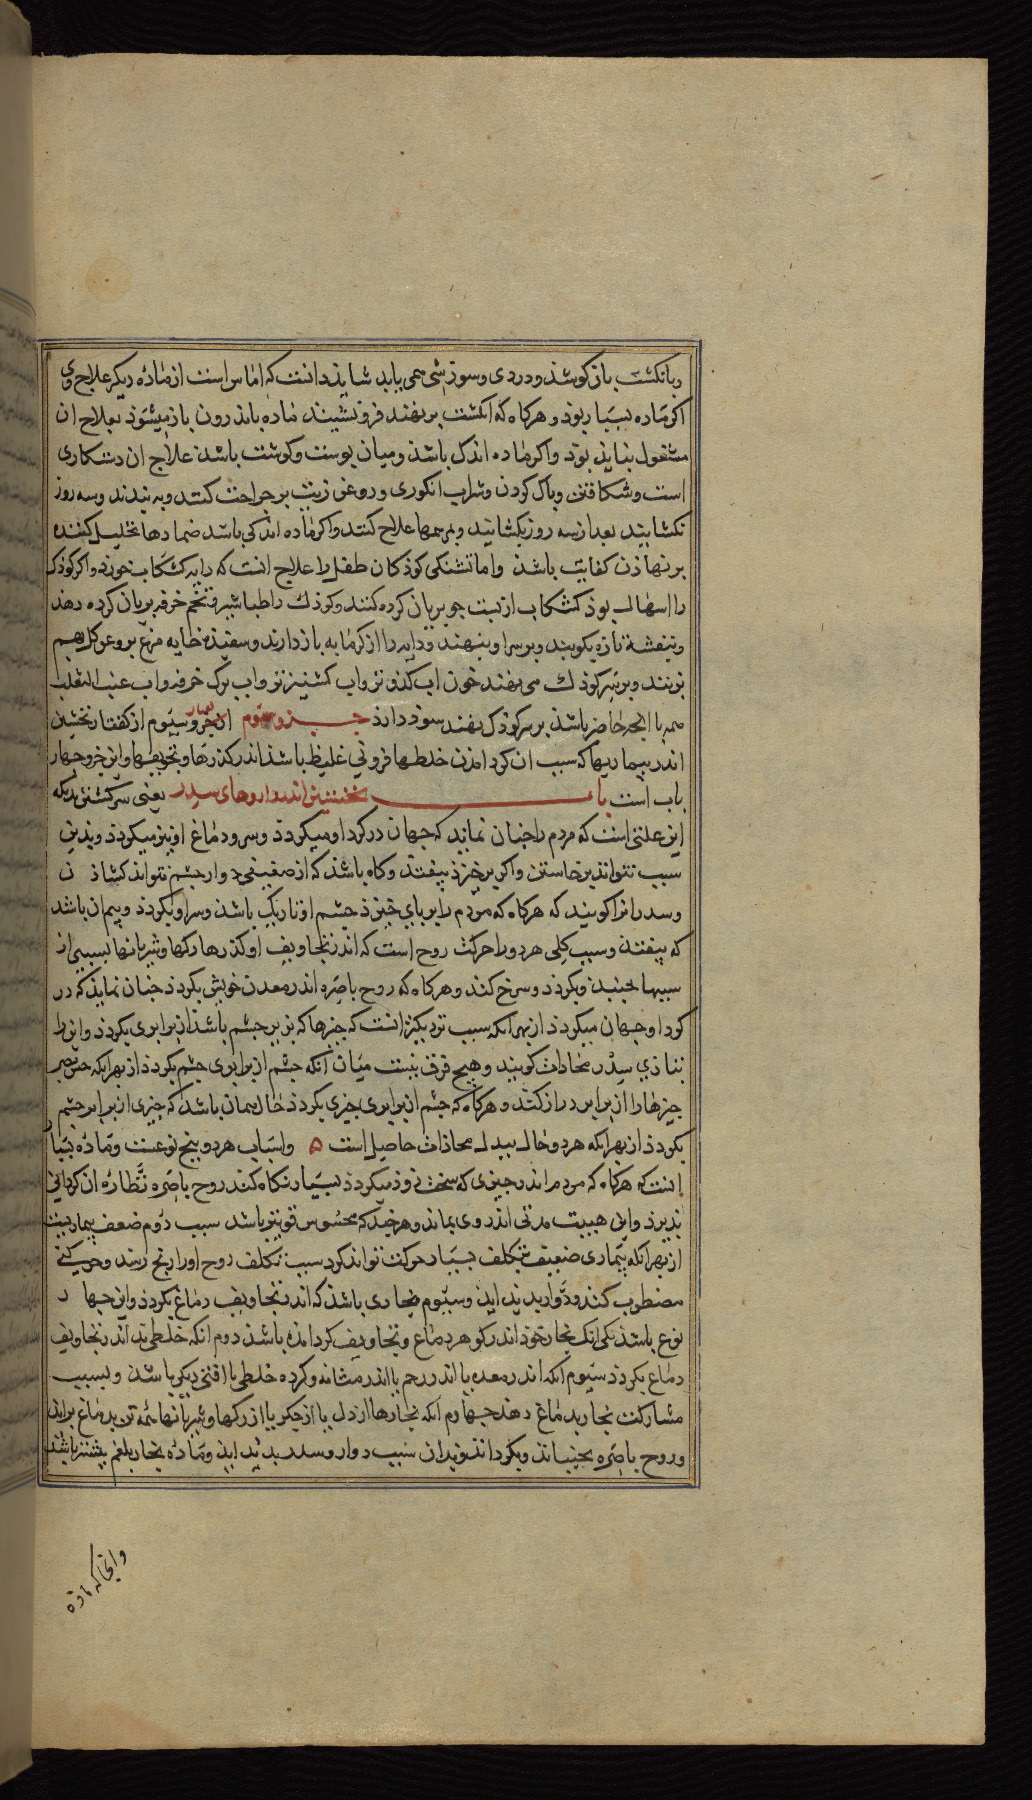 و بانکشت باز کوشذ و دردی و سوزشی همی یابد شاید دانست که اماس است از مادۀ دیکر علاج وی
اکر ماده بسیار بوذ و هرکاه که انکشت بر نهند فرو نشیند ماده باندرون باز میشوذ بعلاج ان
مشغول نباید بوذ و اکر ماده اندک باشذ و میان پوست و کوشت باشذ علاج ان دستکاری
است و شکافتن و پاک کردن و شراب انکوری و روغن زیت بر جراحت کنند و به بندند و سه روز
نکشایند بعد از سه روز بکشایند و بمرهمها علاج کنند و اکر ماده اندکی باشد ضمادها تحلیل کننده
بر نهاذن کفایت باشذ و اما تشنکی کوذکان طفل را علاج انست که دایه کشکاب خورد و اکر کوذک
را اسهال بوذ کشکاب از پست جو بریان کرده کنند و کوذک را طباشیر و تخم خرفه بریان کرده دهند
و بنفشه تازه بکوبند و بر سر او بنهند و دایه را از کرمابه باز دارند و سفیذه خایه مرغ بروغن کل بهم
بزنند و بر سر کوذک می نهند خون اب کذو تر و اب کشنیز تر و اب برک خرفه و اب عنب الثعلب
همه یا انچه حاضر باشذ بر سر کوذک نهند سوذ دارذ جـــزو سیوم از جزو سیوم از کفتار نخستین
اندر بیماریها که سبب ان کرد امدن خلطها فزونی غلیظ باشذ اندر کذرها و تجویفها و این جزو چهار
باب است باب نخستین اندر دوار و سدر یعنی سرکشتن بدانکه
این علتی است که مردم را چنان نماید که جهان در کرد او میکردذ و سر و دماغ او نیز میکردذ و بدین
سبب نتواند بر خاستن و اکر برخیزذ بیفتد و کاه باشذ که از صعبی چشم نتواند کشاذن
و سدر انرا کویند که هرکاه که مردم بر پای خیزد چشم او تاریک باشذ و سر او بکردذ و بیم ان باشد
که بیفتذ و سبب کلی هر دو را حرکت روح است که اندر تجاویف او کذرها رکها و شریانها بسببی از
سببها بجنبذ و بکردذ و سرخ کند و هرکاه که روح باصره اندر معدن خویش بکردذ چنان نمایذ که در
کرد او جهان میکردذ از بهر انکه سبب نزدیکی انست که چیزها که نزیر چشم باشذ از برابری بکردذ و انرا
بتازی محاذات کویند و هیچ فرق نیست میان انکه چشم از برابری چشم بکردذ از بهر انکه حس بصر
چیزها را از برابر در از کند و هرکاه که چشم از برابری چیزی بکردذ حال همان باشذ که چیزی از برابر چشم
بکردذ از بهر انکه هر دو حال محاذات حاصل است و اسباب هر دو پنج نوعست و ماده بسیار
انست که هرکاه که مردم اندر چیزی که سخت زوذ میکردذ بسیار نکاه کند روح باصره نظاره ان
پذیرذ و این هییت مدتی اندر وی بماند و هر چند که محسوس قویتر باشد سبب دوم ضعف بیماریست
از بهر انکه بیماری ضعیف بتکلف بسیار حرکت تواند کرد سبب تکلف روح او را رنج رسد و حرکتی
مضطرب کند و دوار پدید اید و سیوم بخاری باشذ که اندر تجاویف دماغ بکردذ و این چهار
نوع باشذ یکی انک بخار خوذ اندر کوهر دماغ و تجاویف کرد امذه باشذ دوم انکه خلطی بد اندر تجاویف
دماغ بکردذ سیوم انکه اندر معده یا اندر رحم یا اندر مثانه و کرده خلطی یا افتی دیکر باشذ و بسبب
مشارکت بخار بدماغ دهذ چهارم انکه بخارها از دل یا از جکر یا از رکها و شریانها همه تن بدماغ براید
و روح باصره بجنباند و بکرداند و بدان سبب دوار و سدر پدید اید و مادۀ بخار بلغم بیشتر باشد
وانجا که ماده